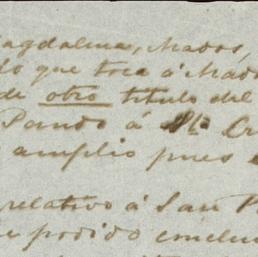 Magdalena, Mados,
lo que toca á Mado
de otro titulo del
Pando á
amplio pues
relativo á San P
podido conclui